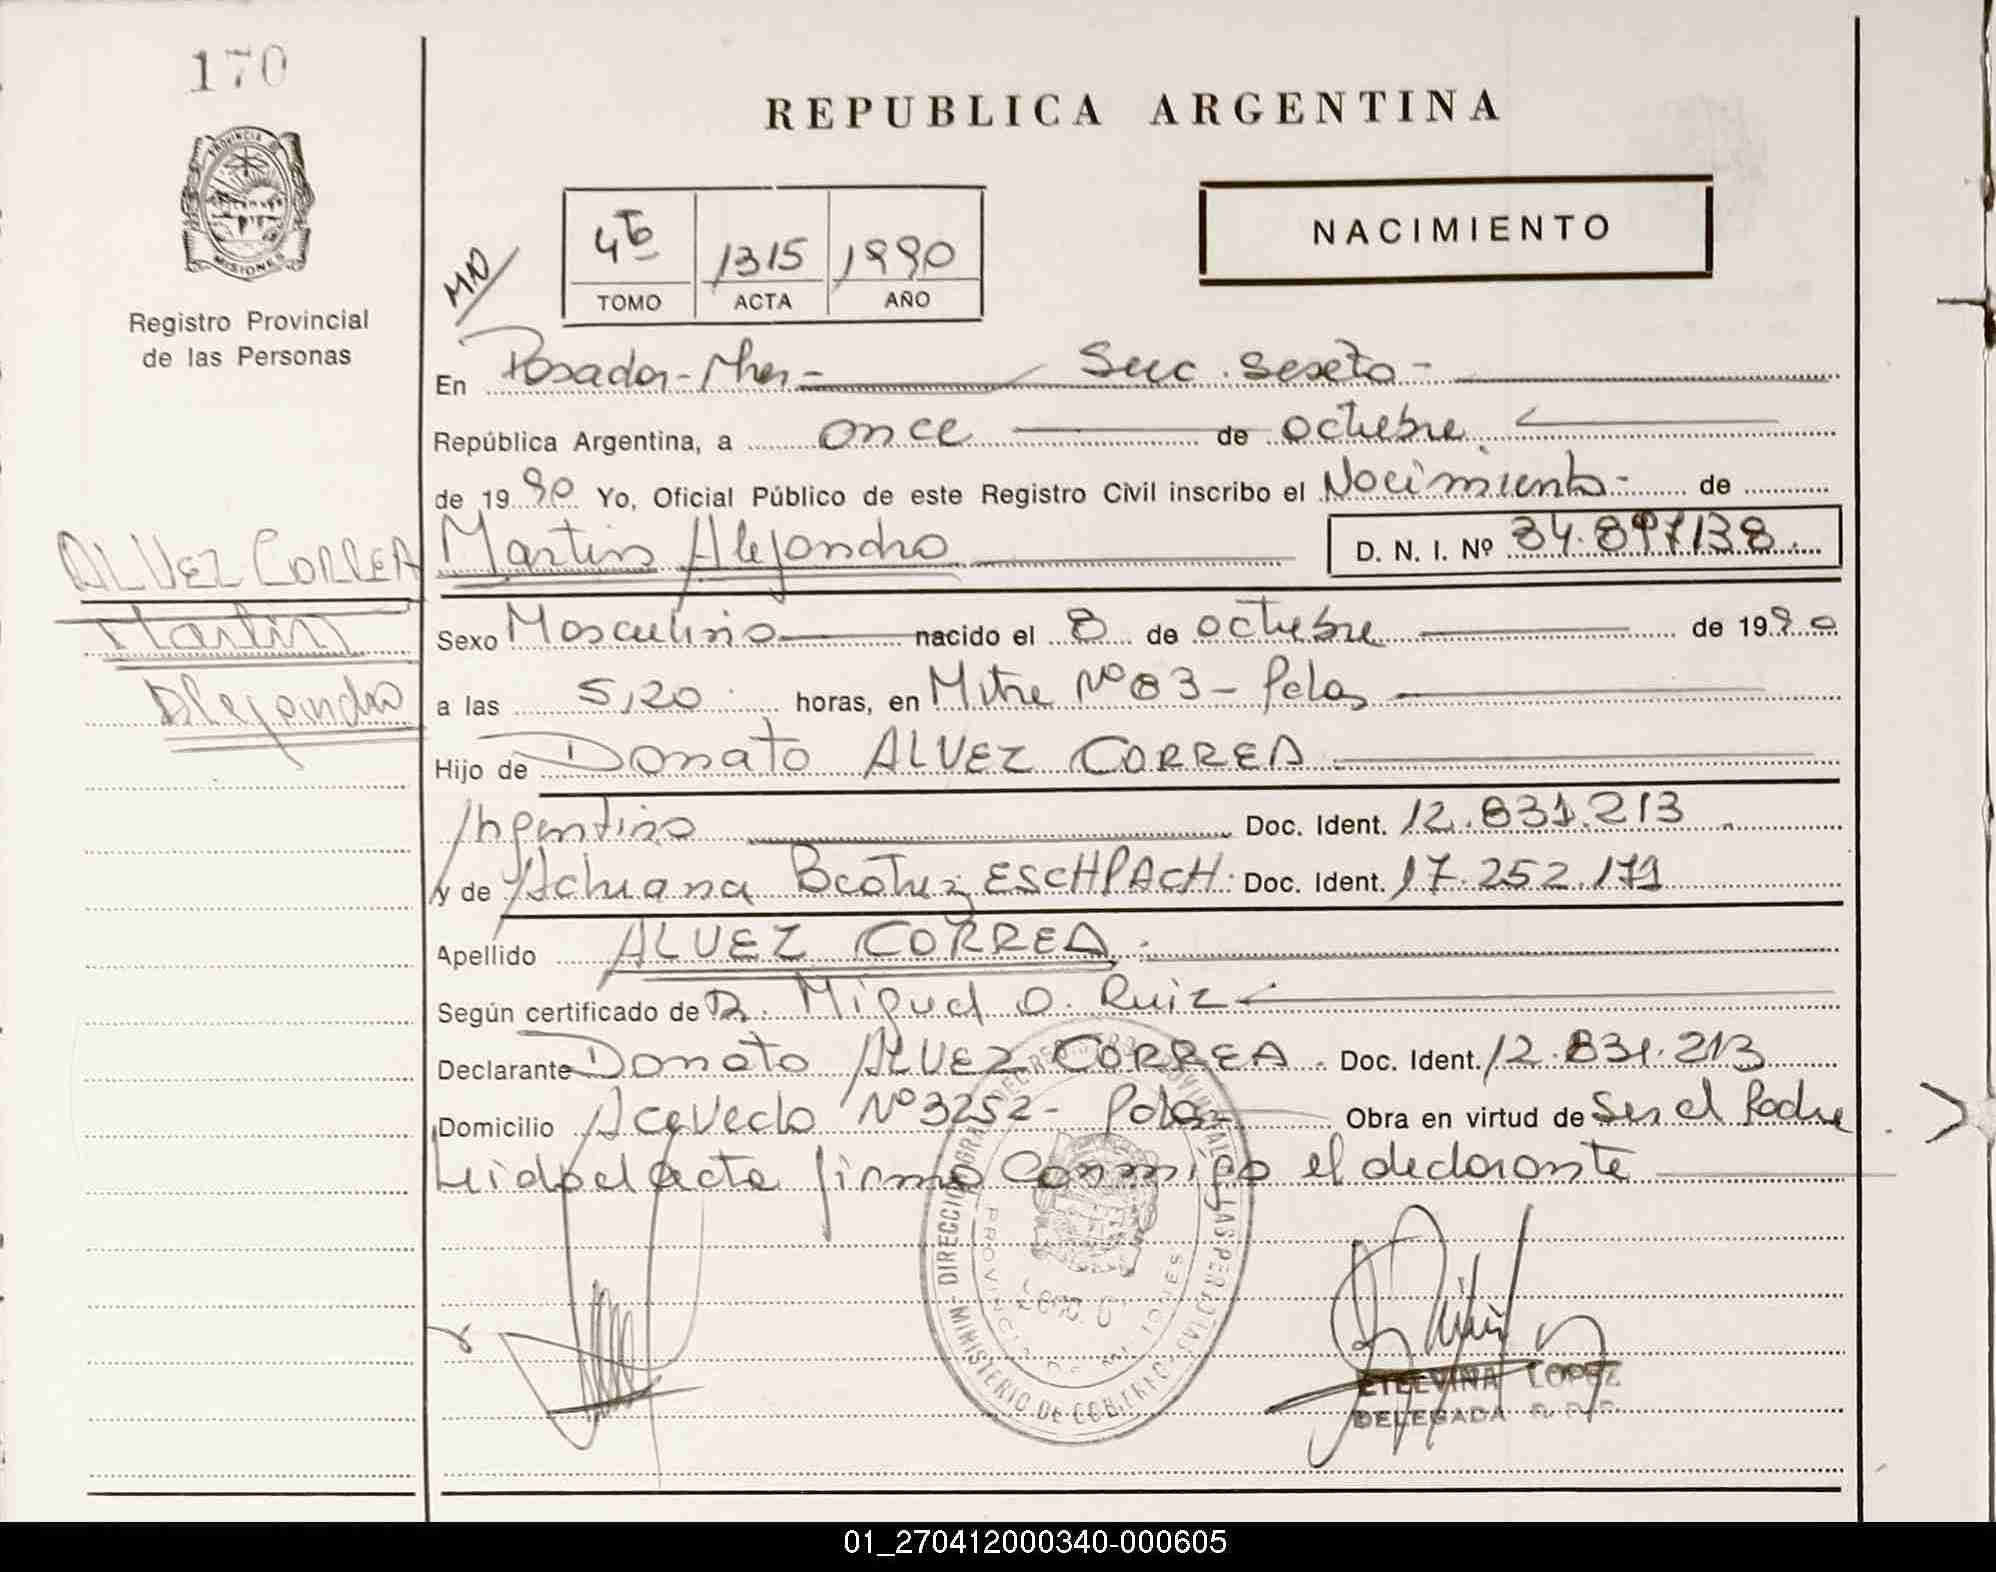 170
REPUBLICA ARGENTINA
PROVINCIA DE
MISIONES
Registro Provincial
de las Personas
4to 1315 1990
TOMO ACTA AÑO
NACIMIENTO
En Posadas - Mnes - Secc. Sexta -
República Argentina, a once de octubre
de 1990 Yo, Oficial Público de este Registro Civil inscribo el Nacimiento - de
ALVEZ CORREA
Martin
Alejandro
Martin Alejandro D. N. I. Nº 34.897138
Sexo Masculino nacido el 8 de octubre de 1990
a las 5,20 horas, en Mitre Nº 83 - Pdas
Hijo de Donato ALVEZ CORREA
Argentino Doc. Ident. 12.831.213
y de Adriana Beatriz ESCHPACH. Doc. Ident. 17.252.171
Apellido ALVEZ CORREA.
Según certificado de Dr. Miguel O. Ruiz
Declarante Donato ALVEZ CORREA. Doc. Ident. 12.831.213
Domicilio Acevedo Nº 3252 - Pdas - Obra en virtud de Ser el Padre
Leido el acta firma conmigo el declarante
ETELVINA LOPEZ
DELEGADA R. P. P.
01_270412000340-000605